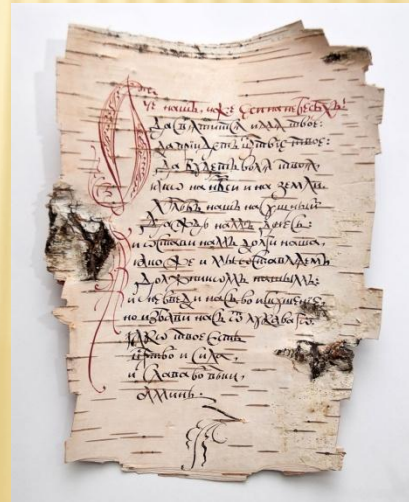 Отче нашъ, иже еси на небесѣхъ!
Да свѧтитсѧ имѧ твое:
да прїидетъ цр҃твїе твое:
да будетъ волѧ твоѧ,
ꙗко на нб҃си и на земли.
Хлѣбъ нашъ насущный
даждь намъ днесь:
и ѡстави намъ долги наша,
ꙗкоже и мы ѡставлѧемъ
должникомъ нашымъ:
и не введи насъ во искушенїе,
но избави насъ ѿ лукаваго
ꙗко твое есть
цр҃тво и сила,
и слава во вѣки,
аминь.